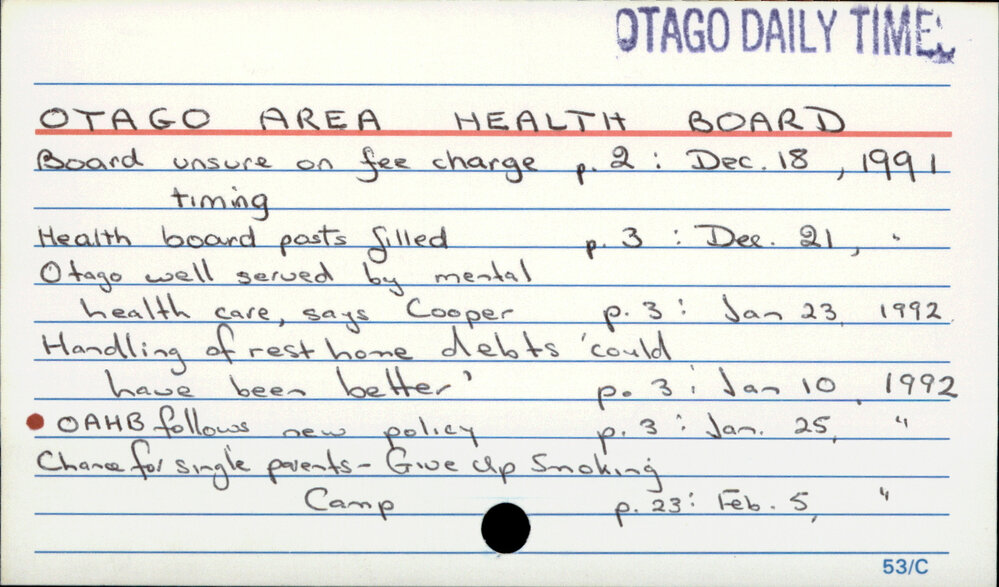 OTAGO DAILY TIMES
OTAGO AREA HEALTH BOARD
Board unsure on fee charge p. 2 : Dec. 18, 1991
timing
Health board posts filled p. 3 : Dec. 21, "
Otago well served by mental
health care, says Cooper p. 3 : Jan 23, 1992
Handling of rest home debts 'could
have been better' p. 3 : Jan 10, 1992
OAHB follows new policy p. 3 : Jan. 25, "
Chance for single parents - Give Up Smoking
Camp p. 23 : Feb. 5, "
53/C